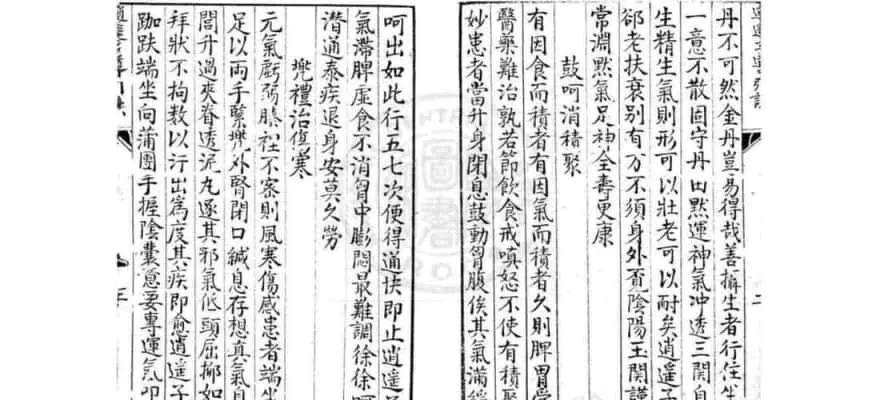 丹不可然金丹豈易得哉善攝生者行住坐
一意不散固守丹田默運神氣沖透三關自
生精生氣則形可以壯老可以耐矣逍遙子
郤老扶衰别有方不須身外覓陰陽玉關謹
常淵默氣足神全壽更康
鼓呵消積聚
有因食而積者有因氣而積者久則脾胃受
醫藥難治孰若節飲食戒嗔怒不使有積聚
妙患者當升身閉息鼓動胷腹俟其氣滿
呵出如此行五七次便得通快即止逍遙子
氣滯脾虚食不消胷中膨悶最難調徐徐呵
潛通泰疾退身安莫久勞
兠禮治傷寒
元氣虧弱腠裡不密則風寒傷感患者端坐
足以兩手緊兠外腎閉口緘息存想真氣自
閭升過夾脊透泥丸逐其邪氣低頭屈抑如
拜狀不拘數以行出爲度其疾即愈逍遙子
跏趺端坐向蒲團手握陰囊意要專運氣叩